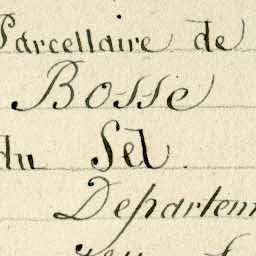 Parcellaire de
Bosse
du Sel
Departem